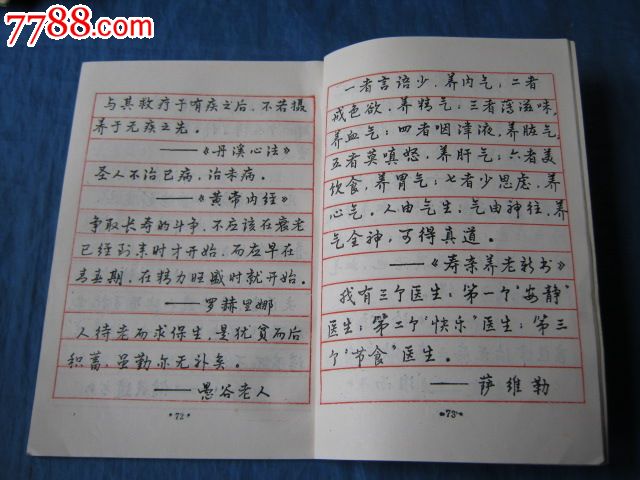 7788.com
与其救疗于有疾之后,不若摄
养于无疾之先。
——《丹溪心法》
圣人不治已病,治未病。
——《黄帝内经》
争取长寿的斗争,不应该在衰老
已经到来时才开始,而应早在
青春期,在精力旺盛时就开始。
——罗赫里娜
人待老而求保生,是犹贫而后
积蓄,虽勤亦无补矣。
——愚谷老人
·72·
一者言语少,养内气;二者
戒色欲,养精气;三者薄滋味,
养血气;四者咽津液,养脏气,
五者莫嗔怒,养肝气;六者美
饮食,养胃气;七者少思虑,养
心气。人由气生,气由神住,养
气全神,可得真道。
——《寿亲养老新书》
我有三个医生:第一个"安静"
医生;第二个"快乐"医生;第三
个"节食"医生。
——萨维勒
·73·